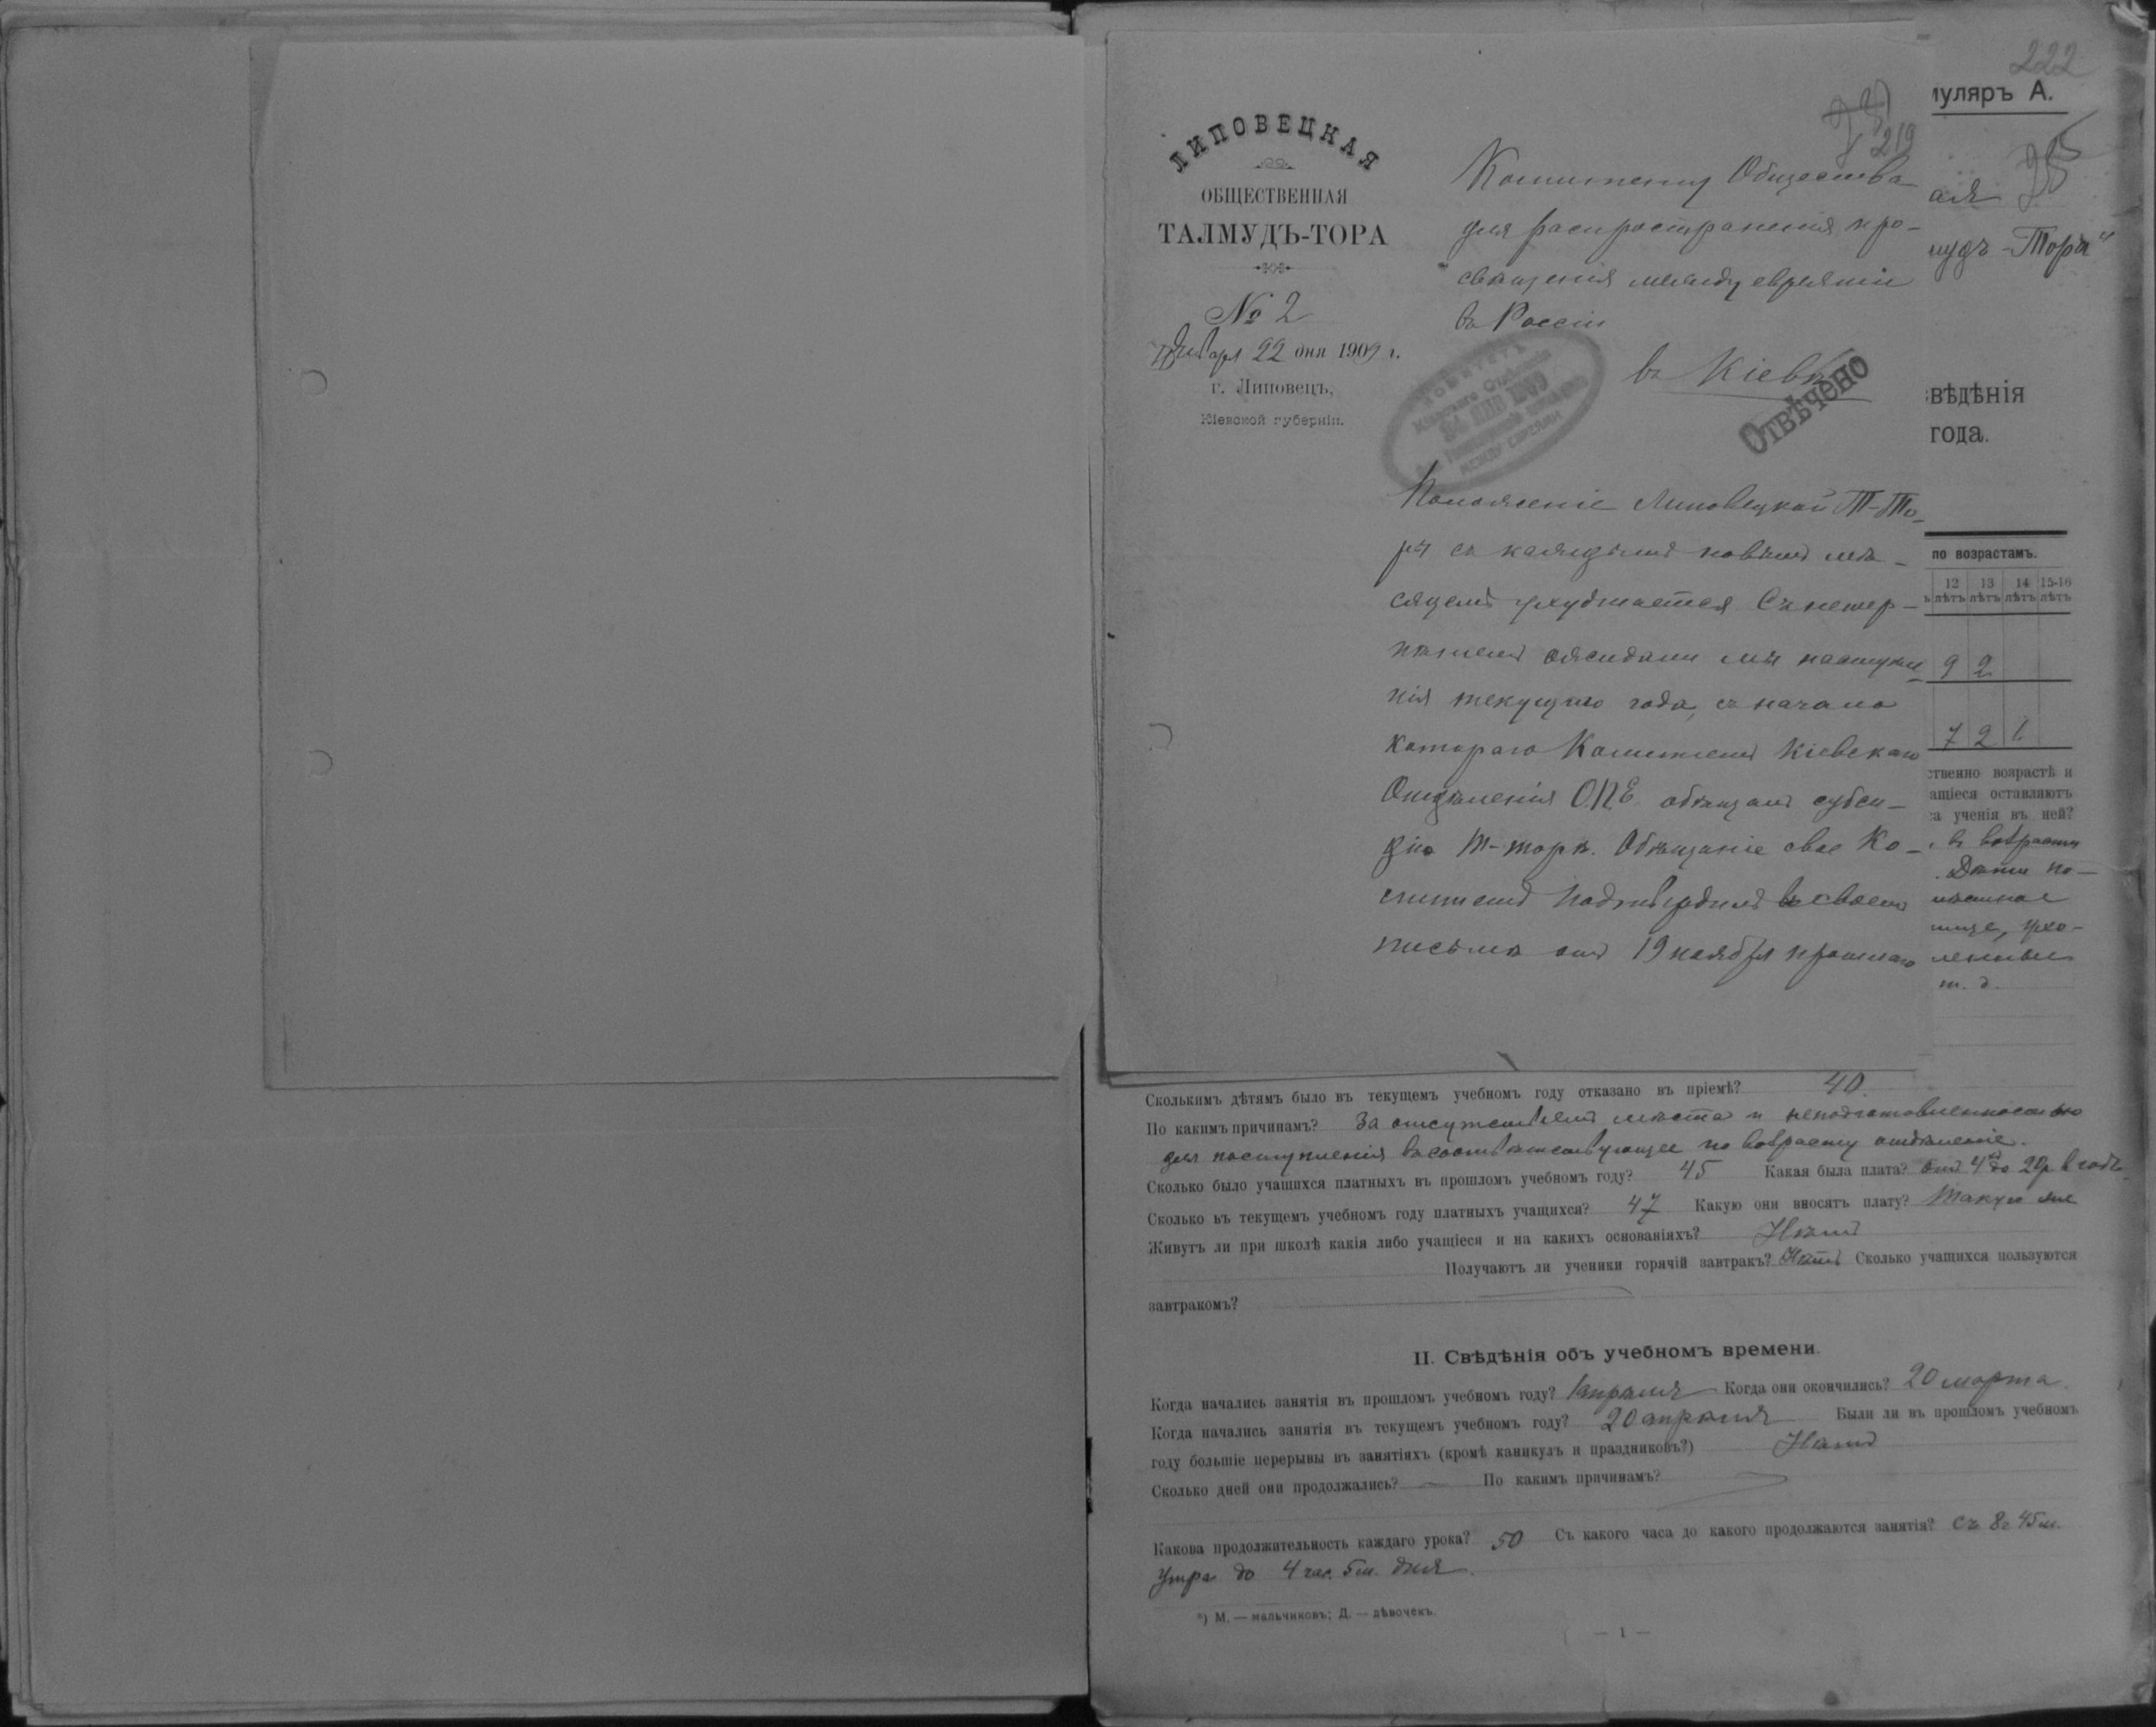 222
муляръ А.
219
ЛИПОВЕЦКАЯ
ОБЩЕСТВЕННАЯ
ТАЛМУДЪ-ТОРА
№ 2
Января 22 дня 1909 г.
г. Липовецъ,
Кіевской губерніи.
Комитету Общества
для распространенія про-
свѣщенія между евреями
въ Россіи
въ Кіевѣ
ОТВѢЧЕНО
КОМИТЕТЪ
Кіевскаго Отдѣленія
24 ЯНВ 1909
МЕЖДУ ЕВРЕЯМИ
Положеніе Липовецкой Т-То-
ры съ каждымъ новымъ мѣ-
сяцемъ ухудшается. Съ нетер-
пѣніемъ ожидали мы наступле-
нія текущаго года, съ начала
котораго Комитетъ Кіевскаго
Отдѣленія О.П.Е. обѣщалъ субси-
дію Т-торѣ. Обѣщаніе свое Ко-
митетъ подтвердилъ въ своемъ
письмѣ отъ 19 ноября прошлаго
ая
мудъ-Тора"
вѣдѣнія
года.
по возрастамъ.
12 лѣтъ 13 лѣтъ 14 лѣтъ 15-16 лѣтъ
9 2
7 2 1
ственно возрастѣ и
ащіеся оставляютъ
а ученія въ ней?
въ возрастѣ
Дѣти по-
т. д.
Сколькимъ дѣтямъ было въ текущемъ учебномъ году отказано въ пріемѣ? 40.
По какимъ причинамъ? За отсутствіемъ мѣста и неподготовленностью
для поступленія въ соотвѣтствующее по возрасту отдѣленіе.
Сколько было учащихся платныхъ въ прошломъ учебномъ году? 45 Какая была плата? Отъ 4 до 20р. въ годъ.
Сколько въ текущемъ учебномъ году платныхъ учащихся? 47 Какую они вносятъ плату? Такую же
Живутъ ли при школѣ какія либо учащіеся и на какихъ основаніяхъ? Нѣтъ
Получаютъ ли ученики горячій завтракъ? Нѣтъ Сколько учащихся пользуются
завтракомъ?
II. Свѣдѣнія объ учебномъ времени.
Когда начались занятія въ прошломъ учебномъ году? 1 апрѣля Когда они окончились? 20 марта.
Когда начались занятія въ текущемъ учебномъ году? 20 апрѣля Были ли въ прошломъ учебномъ
году большіе перерывы въ занятіяхъ (кромѣ каникулъ и праздниковъ?) Нѣтъ
Сколько дней они продолжались? — По какимъ причинамъ?
Какова продолжительность каждаго урока? 50 Съ какого часа до какого продолжаются занятія? Съ 8ч 45м.
утра до 4 час. 5м. дня.
*) М. — мальчиковъ; Д. — дѣвочекъ.
— 1 —